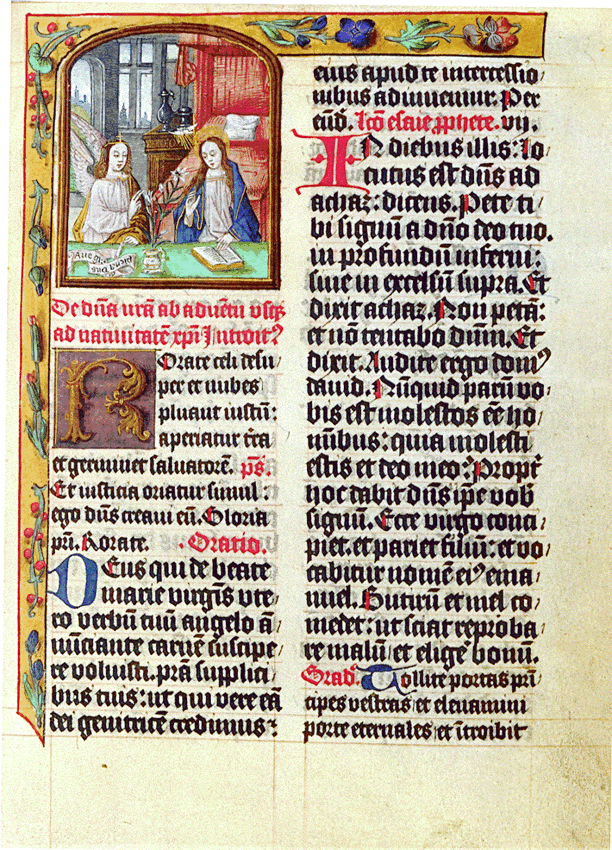 Aue gra
plena dns
De dn̄a nr̄a ab aduētu vsq̄
ad natiuitatē xp̄i Introit⁹
Rorate celi desu/
per et nubes
pluant iustū:
aperiatur tr̄a
et germinet saluatorē. ps̄.
Et iusticia oriatur simul:
ego dn̄s creaui eū. Gloria
pr̄i. Rorate. Oratio.
Deus qui de beate
marie virgīs vte/
ro verbū tuū angelo ā/
nūciante carnē suscipe/
re voluisti. prā supplici/
bus tuis: ut qui vere eā
dei genitricē credimus:
eius apud te intercessio/
nibus adiuuemur. Per
eūd̄. Lcō esaie prophete. vij.
In diebus illis: lo/
cutus est dn̄s ad
achaz: dicens. Pete ti/
bi signū a dn̄o deo tuo.
in profundū inferni:
siue in excelsū supra. Et
dixit achaz. Non petā:
et nō tentabo dn̄um. Et
dixit. Audite ergo dom⁹
dauid. Nūquid parū vo/
bis est molestos eē ho/
mībus: quia molesti
estis et deo meo? Propt̄
hoc dabit dn̄s ip̄e vob̄
signū. Ecce virgo conci/
piet. et pariet filiū: et vo/
cabitur nomē ei⁹ ema/
nuel. Butirū et mel co/
medet: ut sciat reproba/
re malū et elige bonū.
Grad̄. Tollite portas prī/
cipes vestras et eleuamini
porte eternales et ītroibit